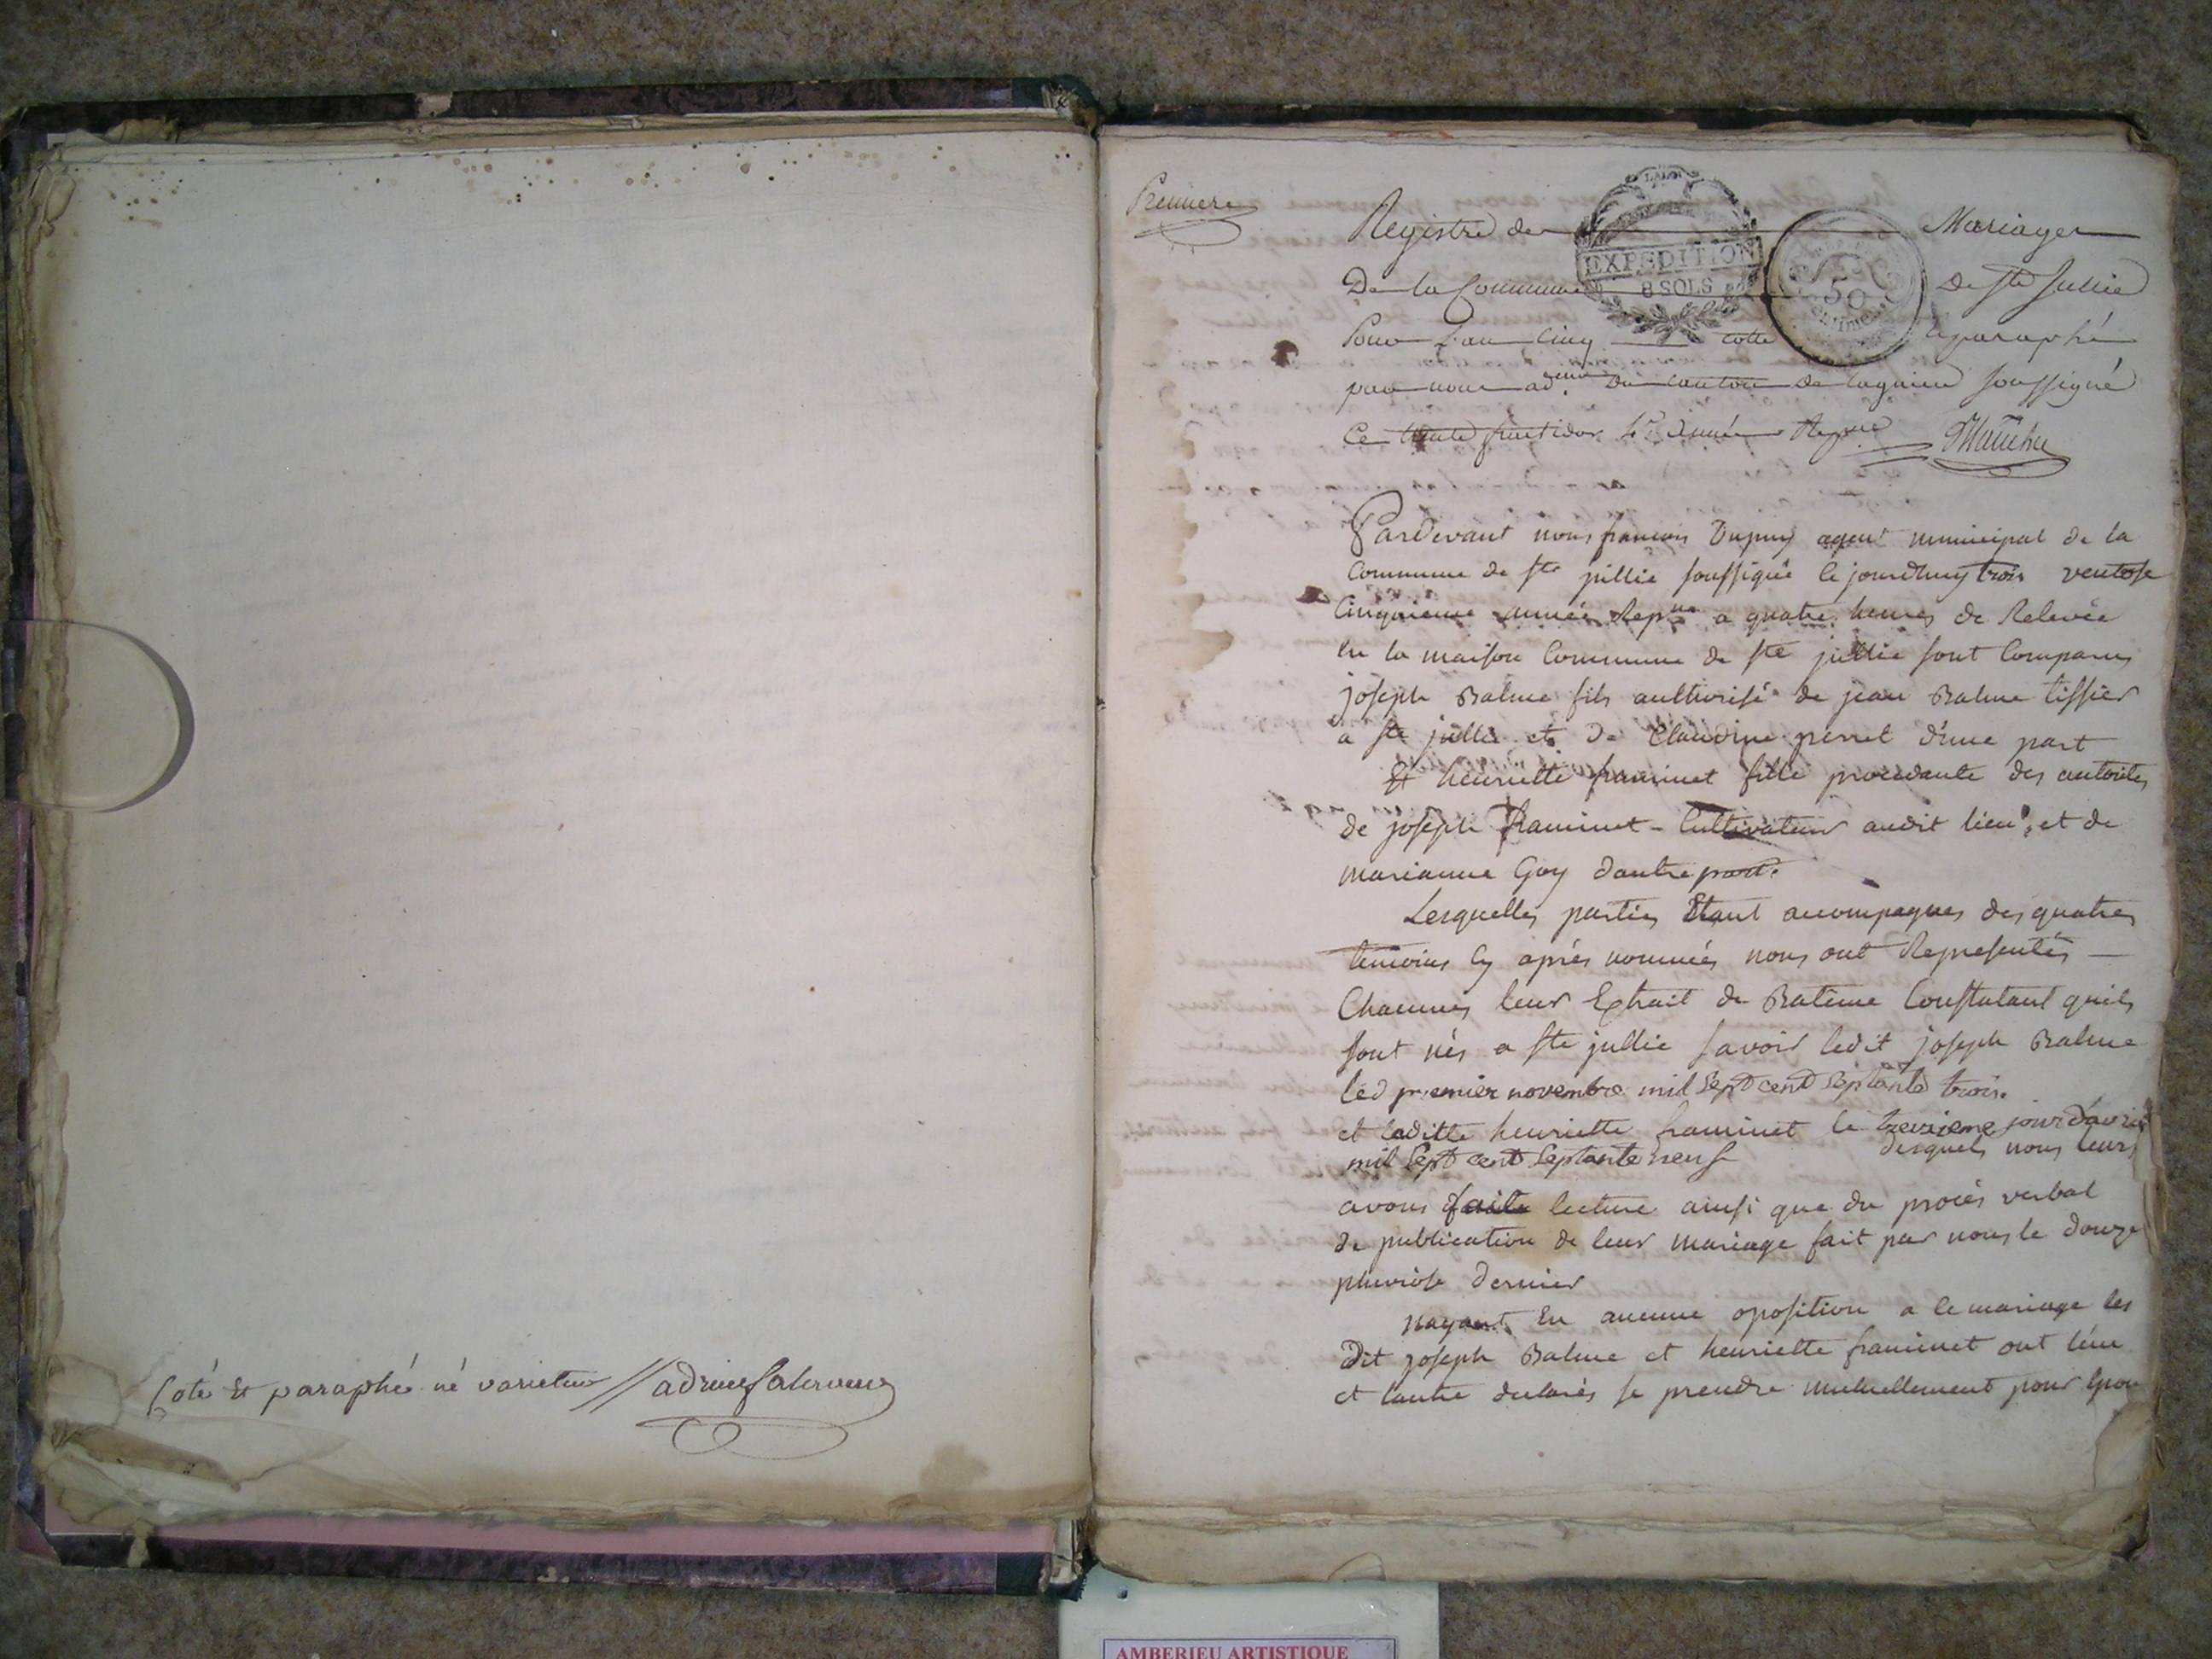 Coté Et paraphé né varietur //
Premiere
Registre des Mariages
De la Commune De Ste Jullie
Pour L'an Cinq cotté et paraphé
par nous adteur Du canton De Lagnieu soussigné
Ce trente fructidor 4e année Repque
L'AIN
EXPEDITION
8 SOLS
50
CENTIMES
Pardevant nous francois Dupuy agent municipal de la
Commune de Ste jullie soussigné Cejourdhuy trois ventose
Cinquieme année Repne a quatre heures de Relevée
En la maison Commune de Ste jullie sont Comparus
joseph Balme fils aulthorisé de jean Balme tissier
a Ste jullie et de Claudine perret d'une part
Et henriette framinet fille procedante des autorités
de joseph framinet Cultivateur audit lieu, et de
marianne Goy dautre part.
Lesquelles parties Etant accompagnes des quatres
temoins Cy aprés nommés nous ont Representés
Chacunes leur Extrait de Batême Constatant quils
sont nés a Ste jullie savoir ledit joseph Balme
led premier novembre mil Sept cent Septante trois.
et laditte henriette framinet le treizieme jour d'avril
mil Sept cent Septante neuf desquels nous leurs
avons faite lecture ainsi que du procés verbal
de publication de leur mariage fait par nous le douze
pluviose dernier
nayant Eu aucune oposition a ce mariage les
Dit joseph Balme et henriette framinet ont l'un
et lautre declarés se prendre mutuellement pour Epou
AMBERIEU ARTISTIQUE